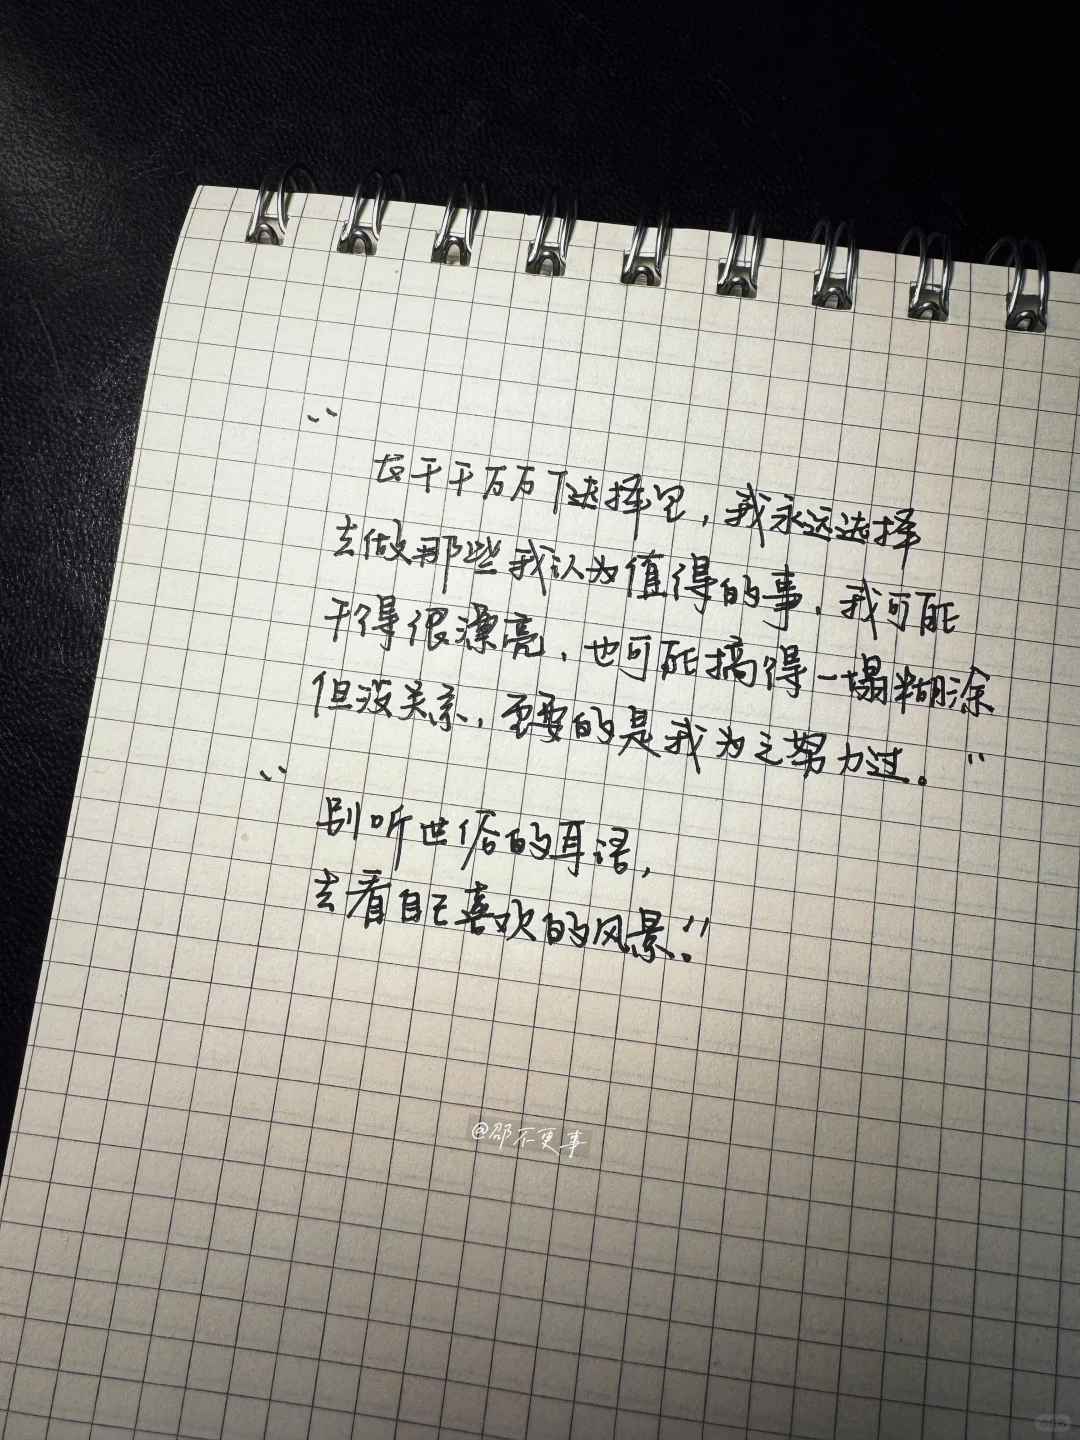 “
在千千万万个选择里，我永远选择
去做那些我认为值得的事，我可能
干得很漂亮，也可能搞得一塌糊涂
但没关系，重要的是我为之努力过。”
“
别听世俗的耳语，
去看自己喜欢的风景。”
@邵不更事